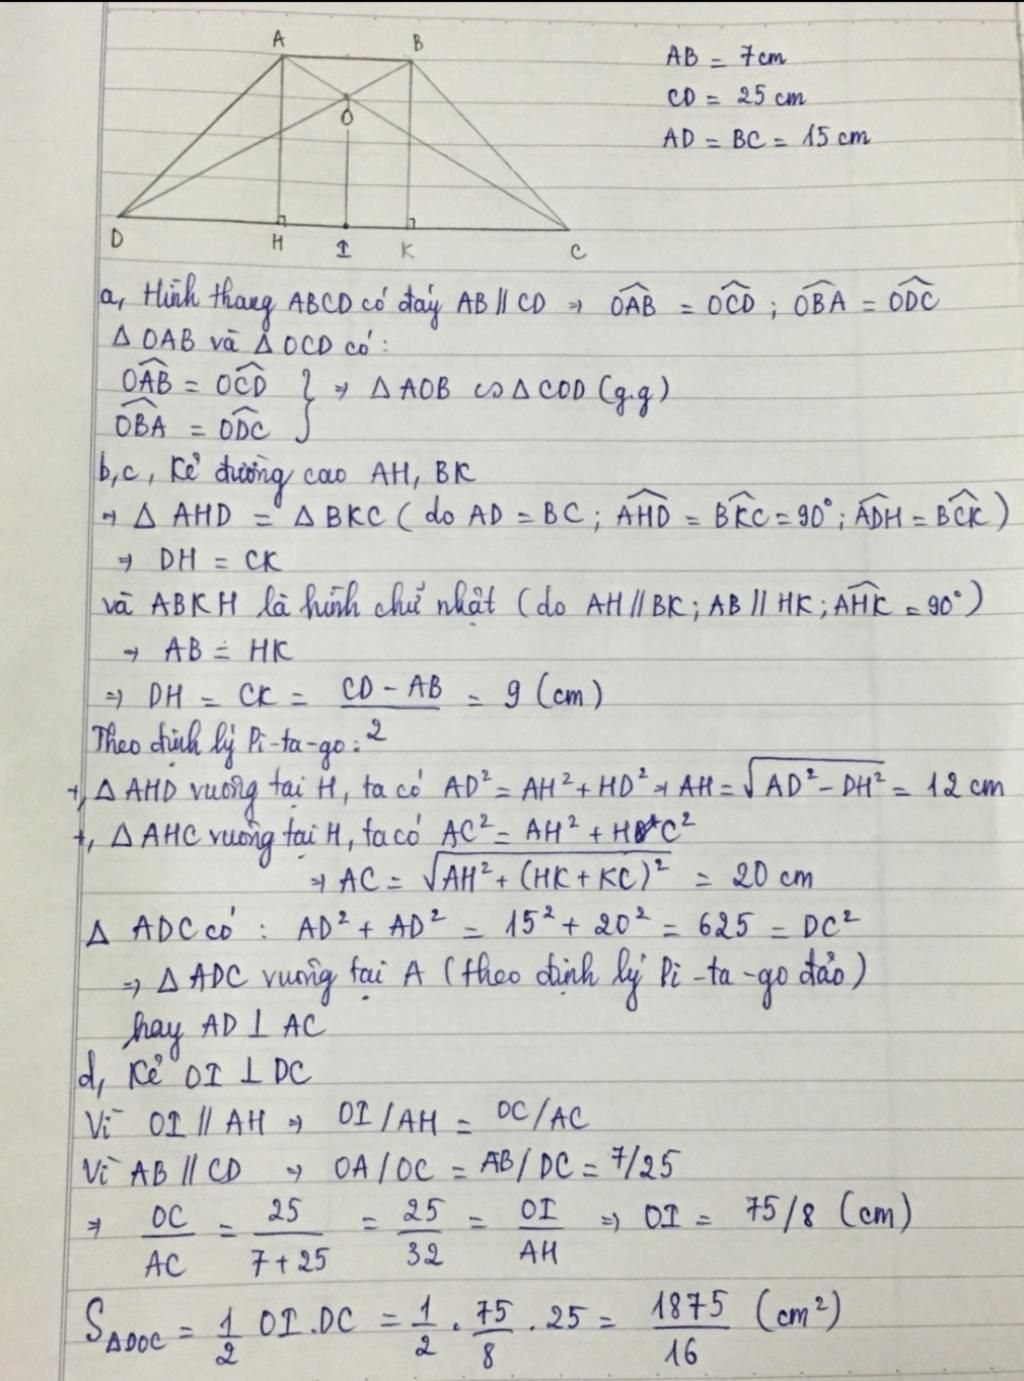 A B
AB = 7cm
CD = 25 cm
AD = BC = 15 cm
O
D H I K C
a, Hình thang ABCD có đáy AB // CD ⇒ \widehat{OAB} = \widehat{OCD} ; \widehat{OBA} = \widehat{ODC}
Δ OAB và Δ OCD có :
\widehat{OAB} = \widehat{OCD} } ⇒ Δ AOB ∽ Δ COD (g.g)
\widehat{OBA} = \widehat{ODC}
b,c, Kẻ đường cao AH, BK
⇒ Δ AHD = Δ BKC ( do AD = BC ; \widehat{AHD} = \widehat{BKC} = 90° ; \widehat{ADH} = \widehat{BCK} )
⇒ DH = CK
và ABKH là hình chữ nhật (do AH // BK ; AB // HK ; \widehat{AHK} = 90°)
⇒ AB = HK
⇒ DH = CK = \frac{CD - AB}{2} = 9 (cm)
Theo định lý Pi-ta-go :
+, Δ AHD vuông tại H, ta có AD² = AH² + HD² ⇒ AH = √(AD² - DH²) = 12 cm
+, Δ AHC vuông tại H, ta có AC² = AH² + HC²
⇒ AC = √(AH² + (HK + KC)²) = 20 cm
Δ ADC có : AD² + AD² = 15² + 20² = 625 = DC²
⇒ Δ ADC vuông tại A (theo định lý Pi-ta-go đảo)
hay AD ⊥ AC
d, Kẻ OI ⊥ DC
Vì OI // AH ⇒ OI/AH = OC/AC
Vì AB // CD ⇒ OA/OC = AB/DC = 7/25
⇒ \frac{OC}{AC} = \frac{25}{7+25} = \frac{25}{32} = \frac{OI}{AH} ⇒ OI = 75/8 (cm)
S_{ΔDOC} = \frac{1}{2} OI . DC = \frac{1}{2} . \frac{75}{8} . 25 = \frac{1875}{16} (cm²)